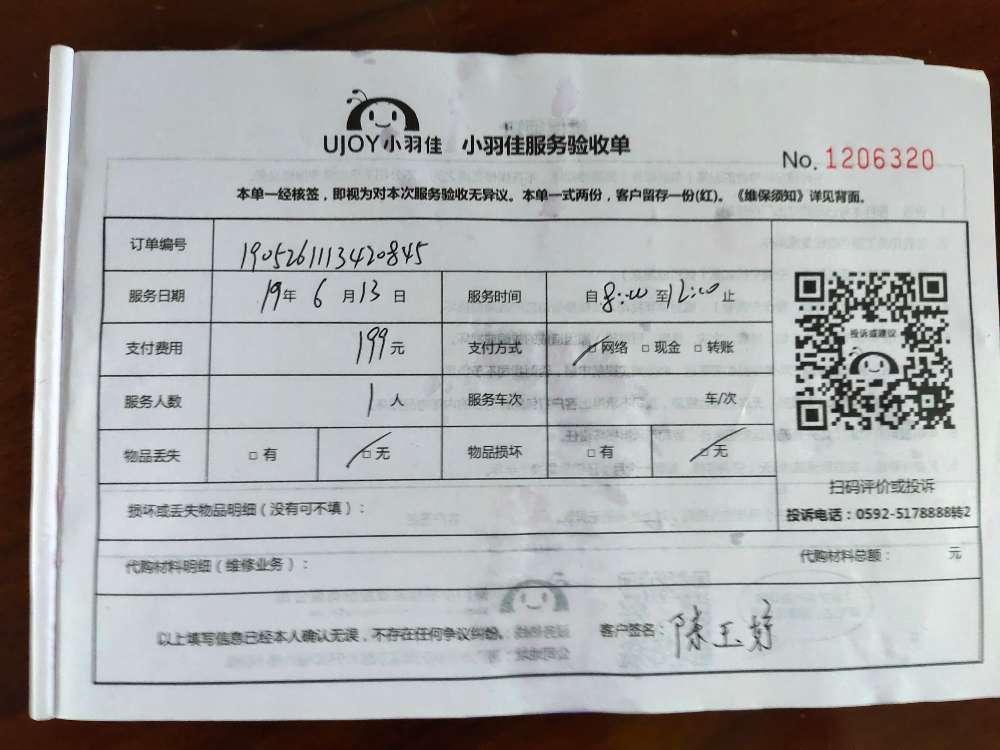 UJOY小羽佳 小羽佳服务验收单
No. 1206320
本单一经核签，即视为对本次服务验收无异议。本单一式两份，客户留存一份(红)。《维保须知》详见背面。
订单编号 1905261113420845
服务日期 19年 6月13日 服务时间 自 8:00 至12:00 止
支付费用 199元 支付方式 □网络 □现金 □转账
投诉或建议
服务人数 1人 服务车次 车/次
物品丢失 □有 □无 物品损坏 □有 □无
扫码评价或投诉
损坏或丢失物品明细（没有可不填）：
投诉电话：0592-5178888转2
代购材料明细（维修业务）：
代购材料总额： 元
以上填写信息已经本人确认无误，不存在任何争议纠纷。 客户签名 陈玉婷